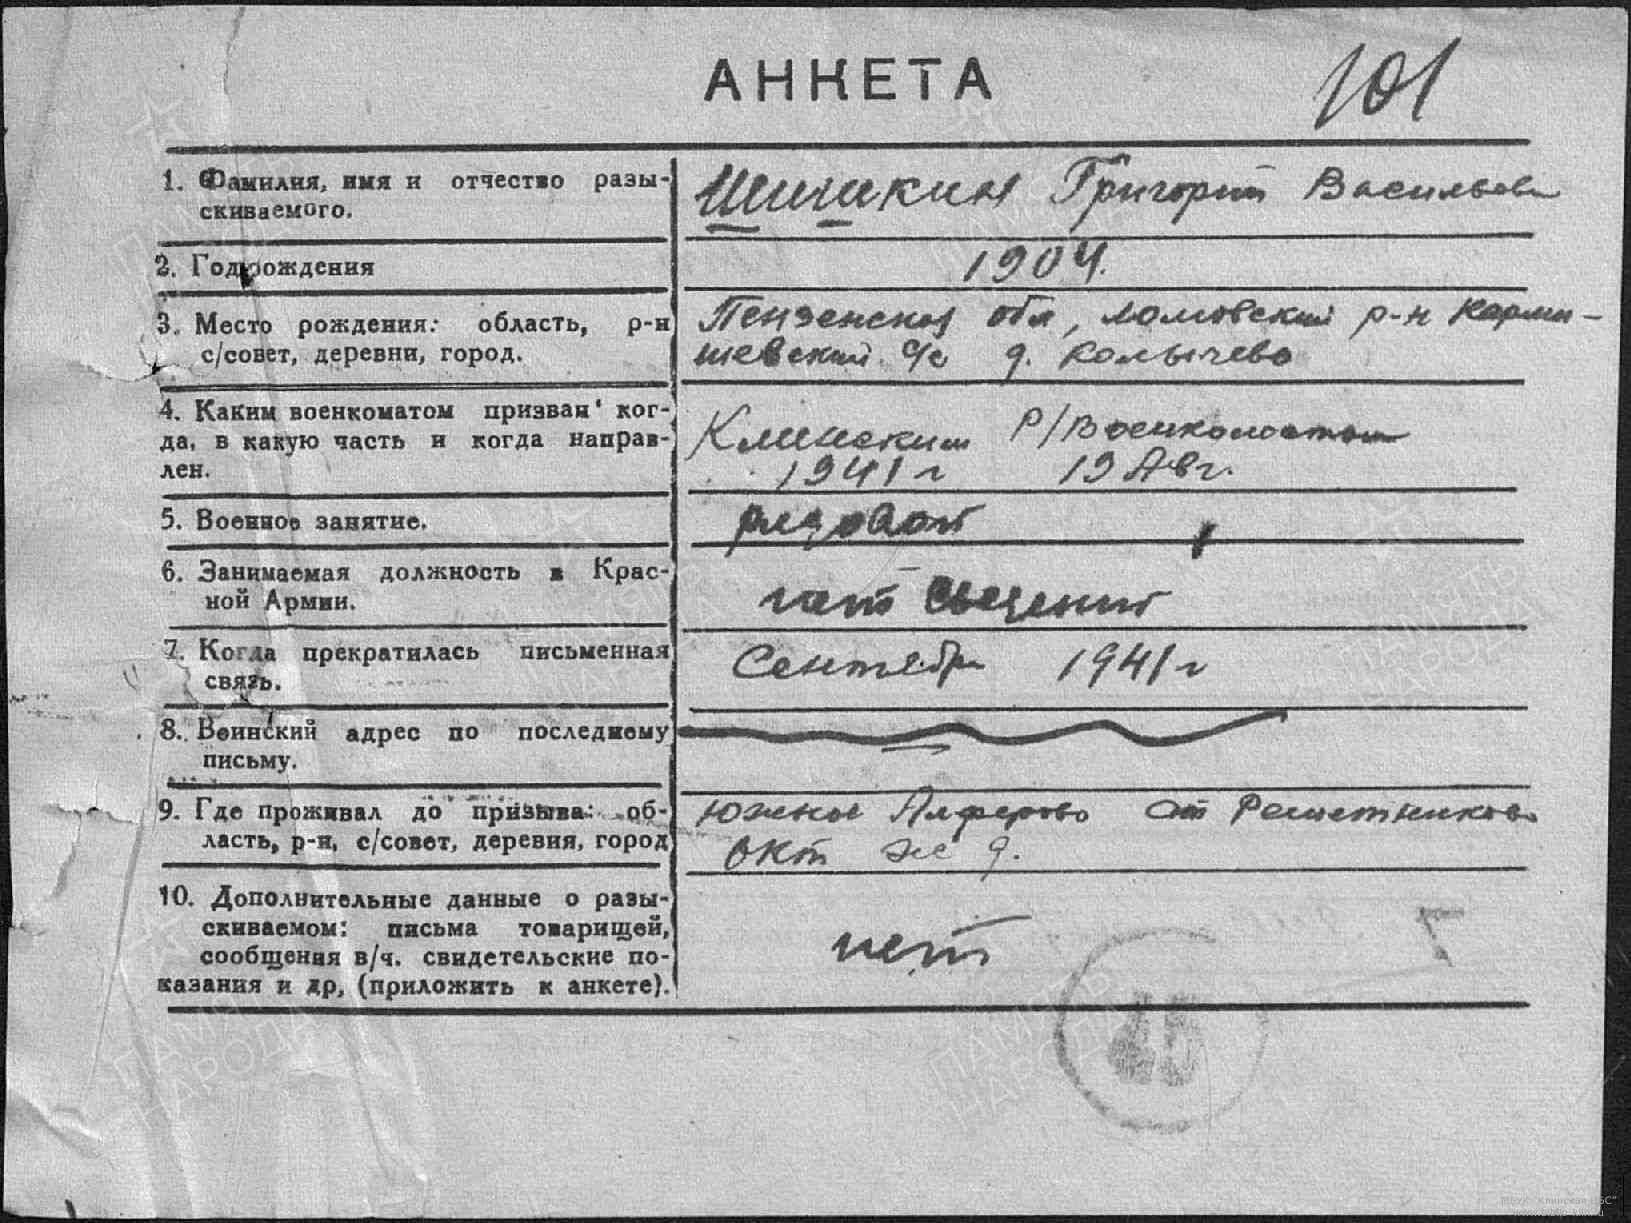 АНКЕТА
101
1. Фамилия, имя и отчество разы-
скиваемого.
Шишкин Григорий Васильеви
2. Год рождения
1904.
3. Место рождения: область, р-н
с/совет, деревни, город.
Пензенская обл, Ломовский р-н Карми-
шевский с/с д. Колычево
4. Каким военкоматом призван ког-
да, в какую часть и когда направ-
лен.
Клинским Р/Военкоматом
1941 г 19 Авг.
5. Военное занятие.
рядовой
6. Занимаемая должность в Крас-
ной Армии.
нет сведений
7. Когда прекратилась письменная
связь.
Сентябрь 1941 г
8. Воинский адрес по последнему
письму.
9. Где проживал до призыва: об-
ласть, р-н, с/совет, деревня, город
Южное Алферово ст Решетниково
окт ж д.
10. Дополнительные данные о разы-
скиваемом: письма товарищей,
сообщения в/ч. свидетельские по-
казания и др, (приложить к анкете).
нет
45
ПАМЯТЬ
НАРОДА
МБУК "Клинская ЦБС"